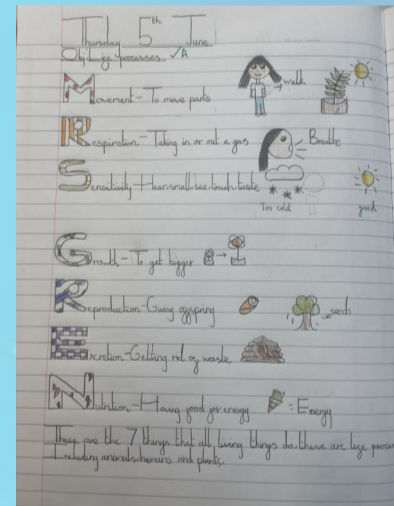 Thursday 5th June
Obj: Life processes ✓A
Movement - To move parts walk
Respiration - Taking in or out a gas Breathe
Sensitivity - Hear, smell, see, touch, taste
Too cold good
Growth - To get bigger
Reproduction - Giving offspring seeds
Excretion - Getting rid of waste
Nutrition - Having food for energy = Energy
These are the 7 things that all living things do. these are life proces
Including animals, humans and plants.